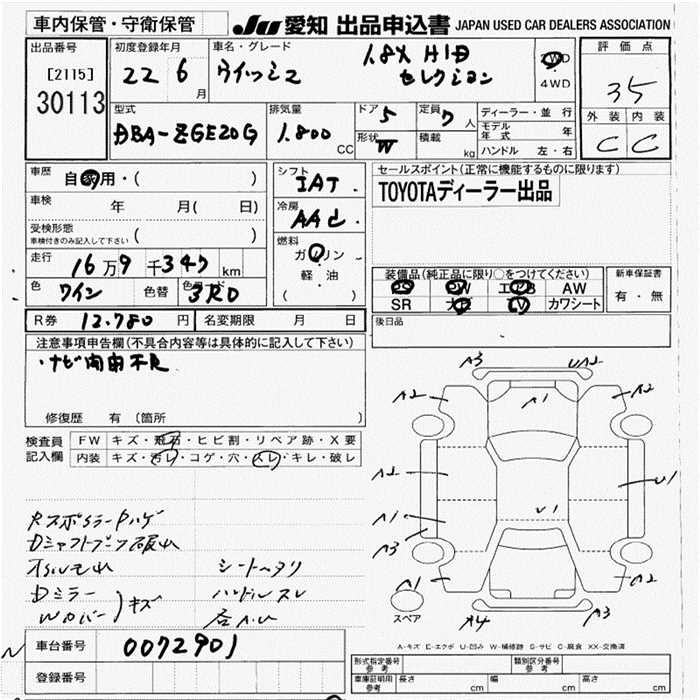 車内保管・守衛保管 JU 愛知 出品申込書 JAPAN USED CAR DEALERS ASSOCIATION
出品番号 初度登録年月 車名・グレード 評価点
[2115] 22 6 月 ウィッシュ 1.8X HID セレクション 2WD ・ 4WD 3.5
30113
型式 排気量 ドア 5 定員 7 人 ディーラー・並行 外装 内装
DBA-ZGE20G 1.800 CC 形状 W 積載 kg モデル年式 年 C C
ハンドル 左・右
車歴 自家用・( ) シフト IAT セールスポイント(正常に機能するものに限ります)
車検 年 月( 日) 冷房 AAC TOYOTAディーラー出品
受検形態 車検付きのみ記入して下さい ( ) 燃料 ガソリン ・ 軽・油 ( )
走行 16万9千347km 装備品(純正品に限り○をつけてください) 新車保証書
色 ワイン 色替 色コード 3R0 PS PW エアB AW 有・無
SR ナビ TV カワシート
R券 12.780 円 名変期限 月 日 後日品
注意事項申告欄(不具合内容等は具体的に記入して下さい)
・ナビ開閉不良
修復歴 有 (箇所 )
検査員記入欄 FW キズ・飛石・ヒビ割・リペア跡・X要
内装 キズ・汚レ・コゲ・穴・スレ・キレ・破レ
A3 UA2
A2 A1 A2
A2 U1
A1 U1
A3
A1 A2
スペア A4 A3
RスポイラーPハゲ
Dシャフトブーツ破れ
オイルモレ シートヘタリ
Dミラー ハンドルスレ
Wカバー )キズ
A-キズ E-エクボ U-凹み W-補修跡 S-サビ C-腐食 XX-交換済
車台番号 0072901
登録番号
形式指定番号 参考 類別区分番号 参考
車庫証明用 参考 長さ cm 幅 cm 高さ cm